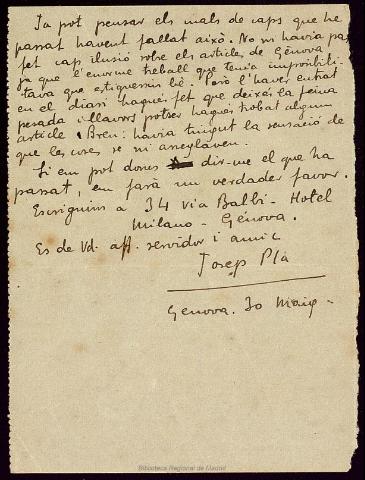 Ja pot pensar els mals de caps que he
passat havent fallat això. No m'havia pas
fet cap ilusió sobre els articles de Génova
ja que l'enorme treball que tenia impossibili-
tava que estiguessin bé. Però l'haver entrat
en el diari hagués fet que deixés la feina
pesada i llavors potser hagués trobat algun
article. Breu: havia tingut la sensació de
que les coses se m'arreglaven.
Si em pot doncs dir-me el que ha
passat, em farà un verdader favor.
Escriguim a 34 via Balbi - Hotel
Milano - Génova.
Es de Vd. aff. servidor i amic
Josep Pla
Génova. 30 Maig -
Biblioteca Regional de Madrid